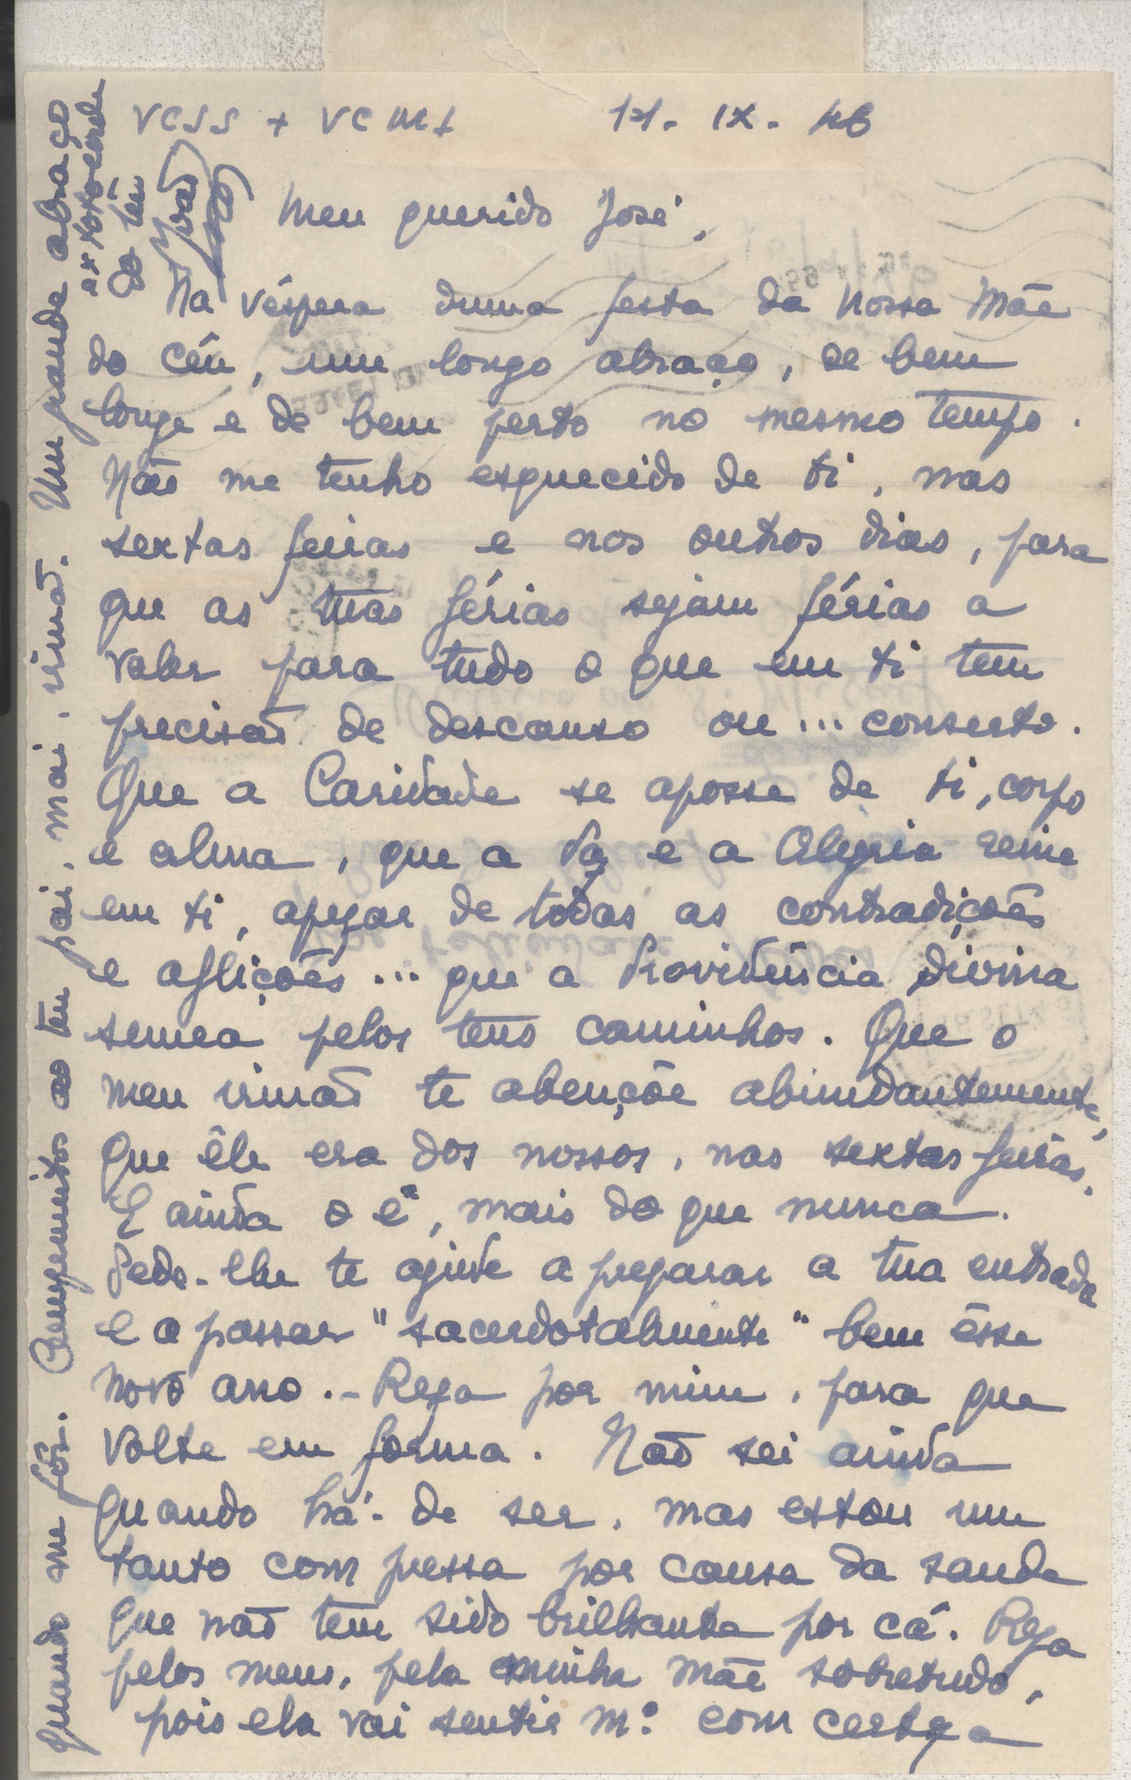 VCSS + VCMI 11. IX. 46
Meu querido José,
Na véspera duma festa da Nossa Mãe
do Céu, um longo abraço, de bem
longe e de bem perto no mesmo tempo.
Não me tenho esquecido de ti, nas
sextas feiras e nos outros dias, para
que as tuas férias sejam férias a
valer para tudo o que em ti tem
precisão de descanso ou... conserto.
Que a Caridade se aposse de ti, corpo
e alma, que a Paz e a Alegria reine
em ti, apezar de todas as contradições
e aflições... que a Providência divina
semea pelos teus caminhos. Que o
meu irmão te abençõe abundantemente,
que êle era dos nossos, nas sextas feiras.
E ainda o é, mais do que nunca.
Pedo-lhe te ajude a preparar a tua entrada
e a passar "sacerdotalmente" bem êsse
novo ano. - Reza por mim, para que
volte em forma. Não sei ainda
quando há-de ser, mas estou um
tanto com pressa por causa da saude
que não tem sido brilhante por cá. Reza
pelos meus, pela minha Mãe sobretudo,
pois ela vai sentir mº com certeza
quando me fôr. Cumprimentos ao teu pai, mai, irmão. Um grande abraço
do teu